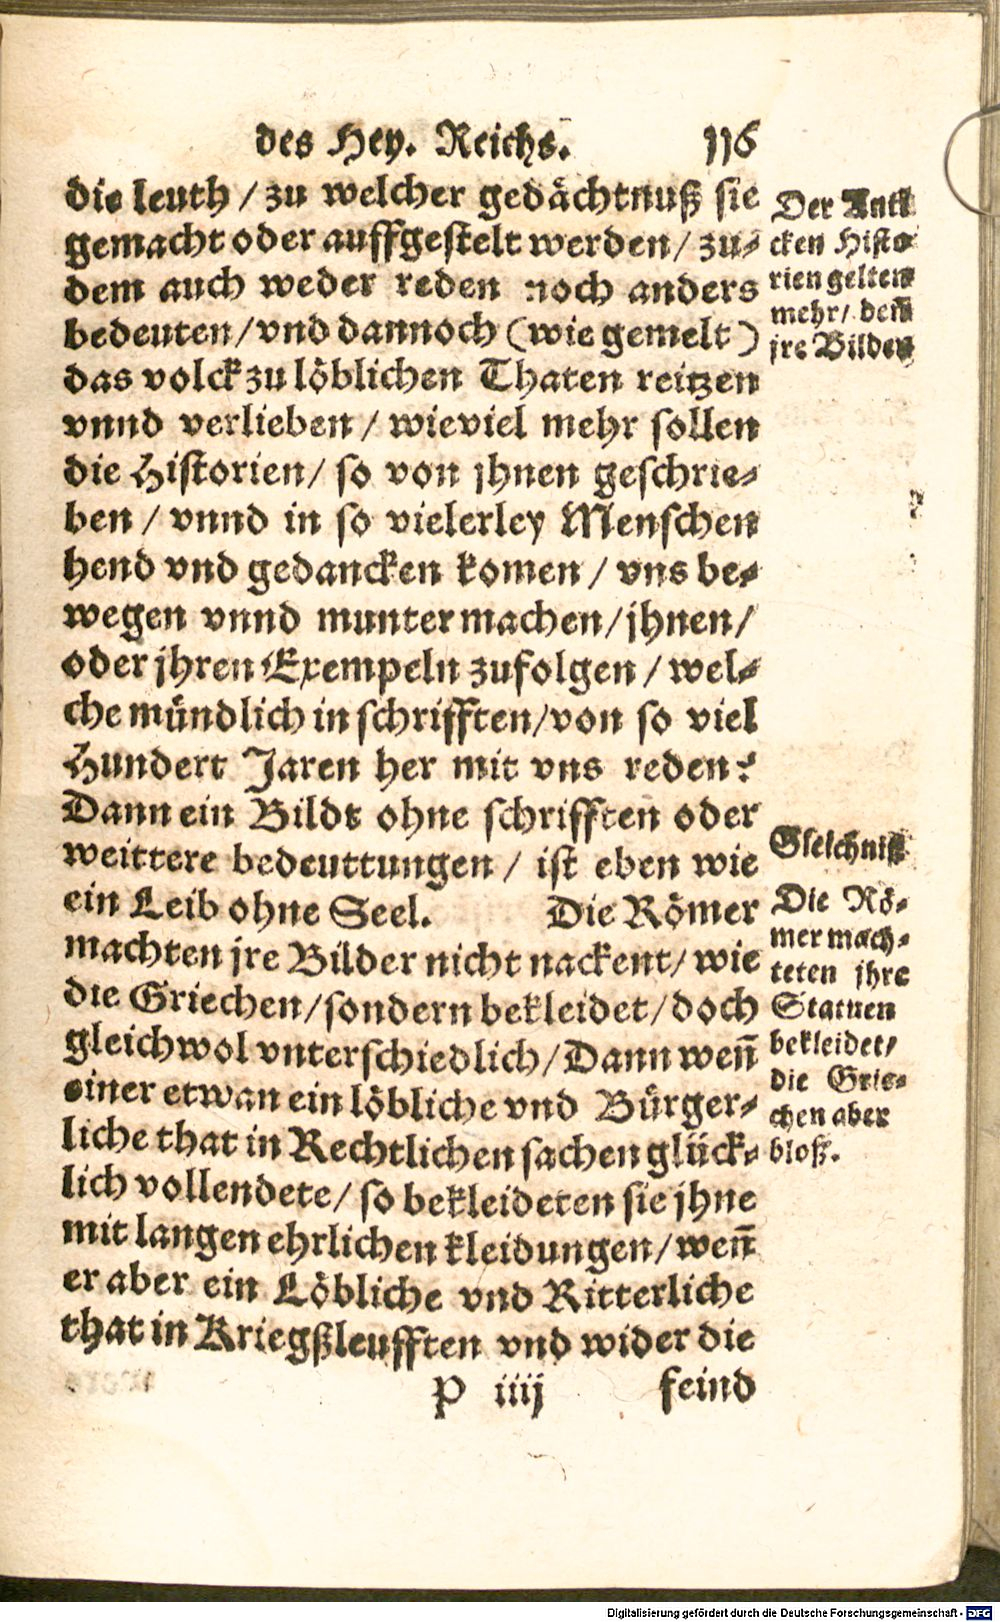 des Hey. Reichs. 116
die leuth / zu welcher gedächtnuß sie
gemacht oder auffgestelt werden / zu-
dem auch weder reden noch anders
bedeuten / vnd dannoch (wie gemelt)
das volck zu löblichen Thaten reitzen
vnnd verlieben / wieviel mehr sollen
die Historien / so von jhnen geschrie-
ben / vnnd in so vielerley Menschen
hend vnd gedancken komen / vns be-
wegen vnnd munter machen / jhnen /
oder jhren Exempeln zufolgen / wel-
che mündlich in schrifften / von so viel
Hundert Jaren her mit vns reden?
Dann ein Bildt ohne schrifften oder
weittere bedeuttungen / ist eben wie
ein Leib ohne Seel. Die Römer
machten jre Bilder nicht nackent / wie
die Griechen / sondern bekleidet / doch
gleichwol vnterschiedlich / Dann weñ
einer etwan ein löbliche vnd Bürger-
liche that in Rechtlichen sachen glück-
lich vollendete / so bekleideten sie jhne
mit langen ehrlichen kleidungen / weñ
er aber ein Löbliche vnd Ritterliche
that in Kriegßleufften vnd wider die
P iiij feind
Der Anti
cken Histo
rien gelten
mehr / deñ
jre Bilder
Gleichniß
Die Rö-
mer mach-
teten jhre
Statuen
bekleidet /
die Grie-
chen aber
bloß.
Digitalisierung gefördert durch die Deutsche Forschungsgemeinschaft - DFG